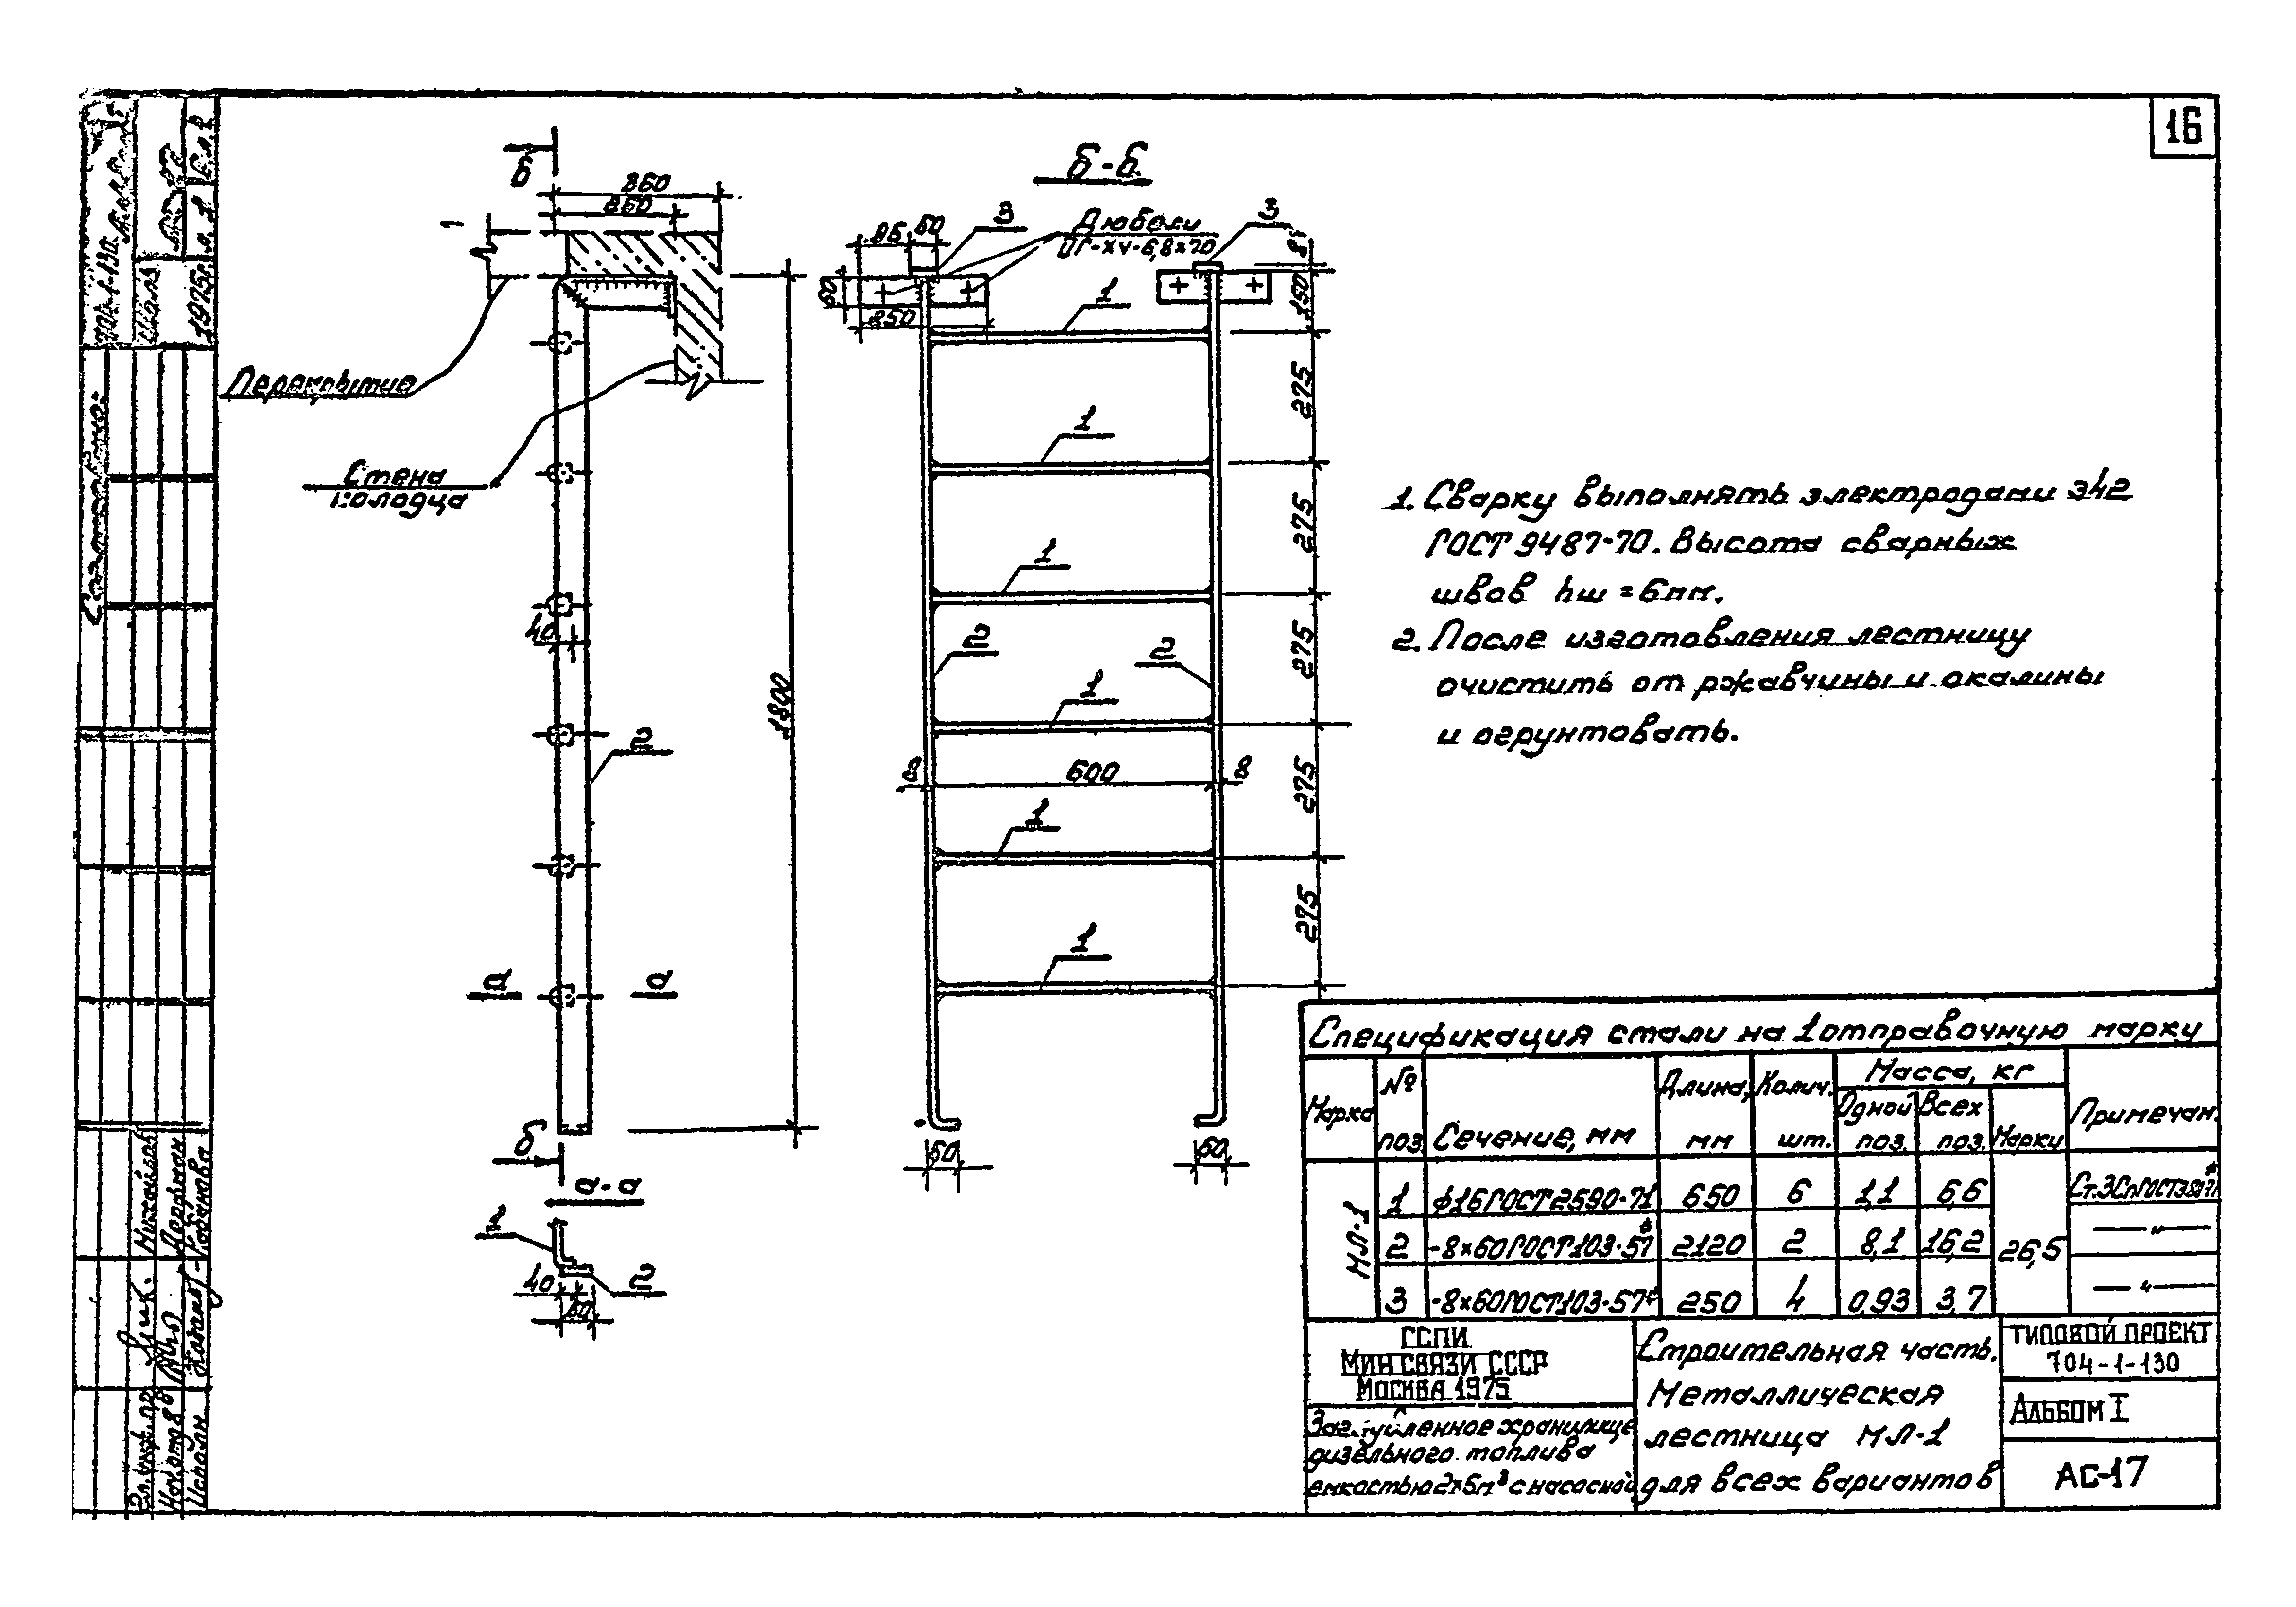 16
Б
860
860
1
Перекрытие
Стена
колодца
40
2
1800
а
а
б
а-а
1
40
60
2
Б-Б
3
Дюбели
ДГ-ХУ-6,8х70
3
85
60
60
250
8
150
1
275
1
275
1
275
2
2
1
275
8
600
8
1
275
1
60
60
1. Сварку выполнять электродами Э42
ГОСТ 9487-70. Высота сварных
швов hш = 6мм.
2. После изготовления лестницу
очистить от ржавчины и окалины
и огрунтовать.
Спецификация стали на 1 отправочную марку
Марка
№ поз
Сечение, мм
Длина, мм
Колич. шт.
Масса, кг
Одной поз.
Всех поз.
Марки
Примечан.
МЛ-1
1 ф16 ГОСТ 2590-71 650 6 1,1 6,6 Ст.3Сп ГОСТ 380-71*
2 -8×60 ГОСТ 103-57* 2120 2 8,1 16,2 26,5 —"—
3 -8×60 ГОСТ 103-57* 250 4 0,93 3,7 —"—
ГСПИ
МИНСВЯЗИ СССР
МОСКВА 1975
Заглубленное хранилище
дизельного топлива
емкостью 2х5м³ с насосной
Строительная часть.
Металлическая
лестница МЛ-1
для всех вариантов
ТИПОВОЙ ПРОЕКТ
704-1-130
АЛЬБОМ I
АС-17
1975г.
Гл. инж. пр.
Нач. отдела
Исполн